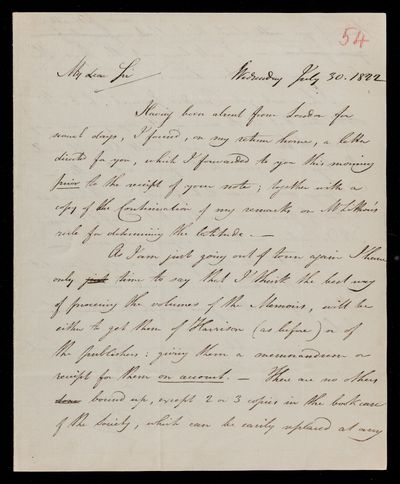 54
My dear Sir
Wednesday July 30. 1822
Having been absent from London for
several days, I found, on my return home, a letter
directed for you, which I forwarded to you this morning
prior to the receipt of your note; together with a
copy of the Continuation of my remarks on
rule for determining the latitude. —
As I am just going out of town again I have
only time to say that I think the best way
of procuring the volumes of the Memoirs, will be
either to get them of Harrison (as before) or of
the publishers: giving them a memorandum or
receipt for them on account. — There are no others
bound up, except 2 or 3 copies in the book case
of the Society, which can be easily replaced at any